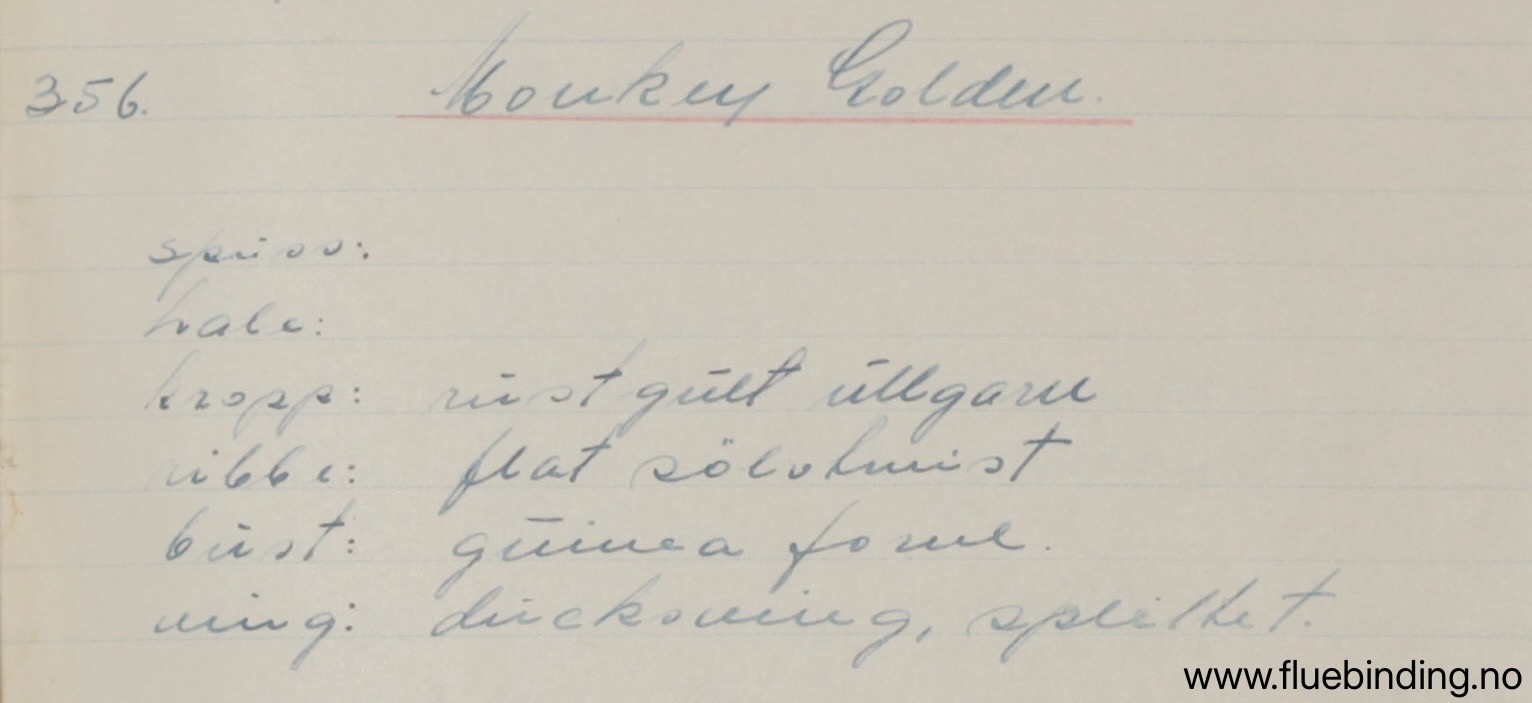 356. Monkey Golden.
spiss:
hale:
kropp: rustgult ullgarn
ribbe: flat sölvtvist
bust: guinea fowl.
ving: duckswing, splittet.
www.fluebinding.no